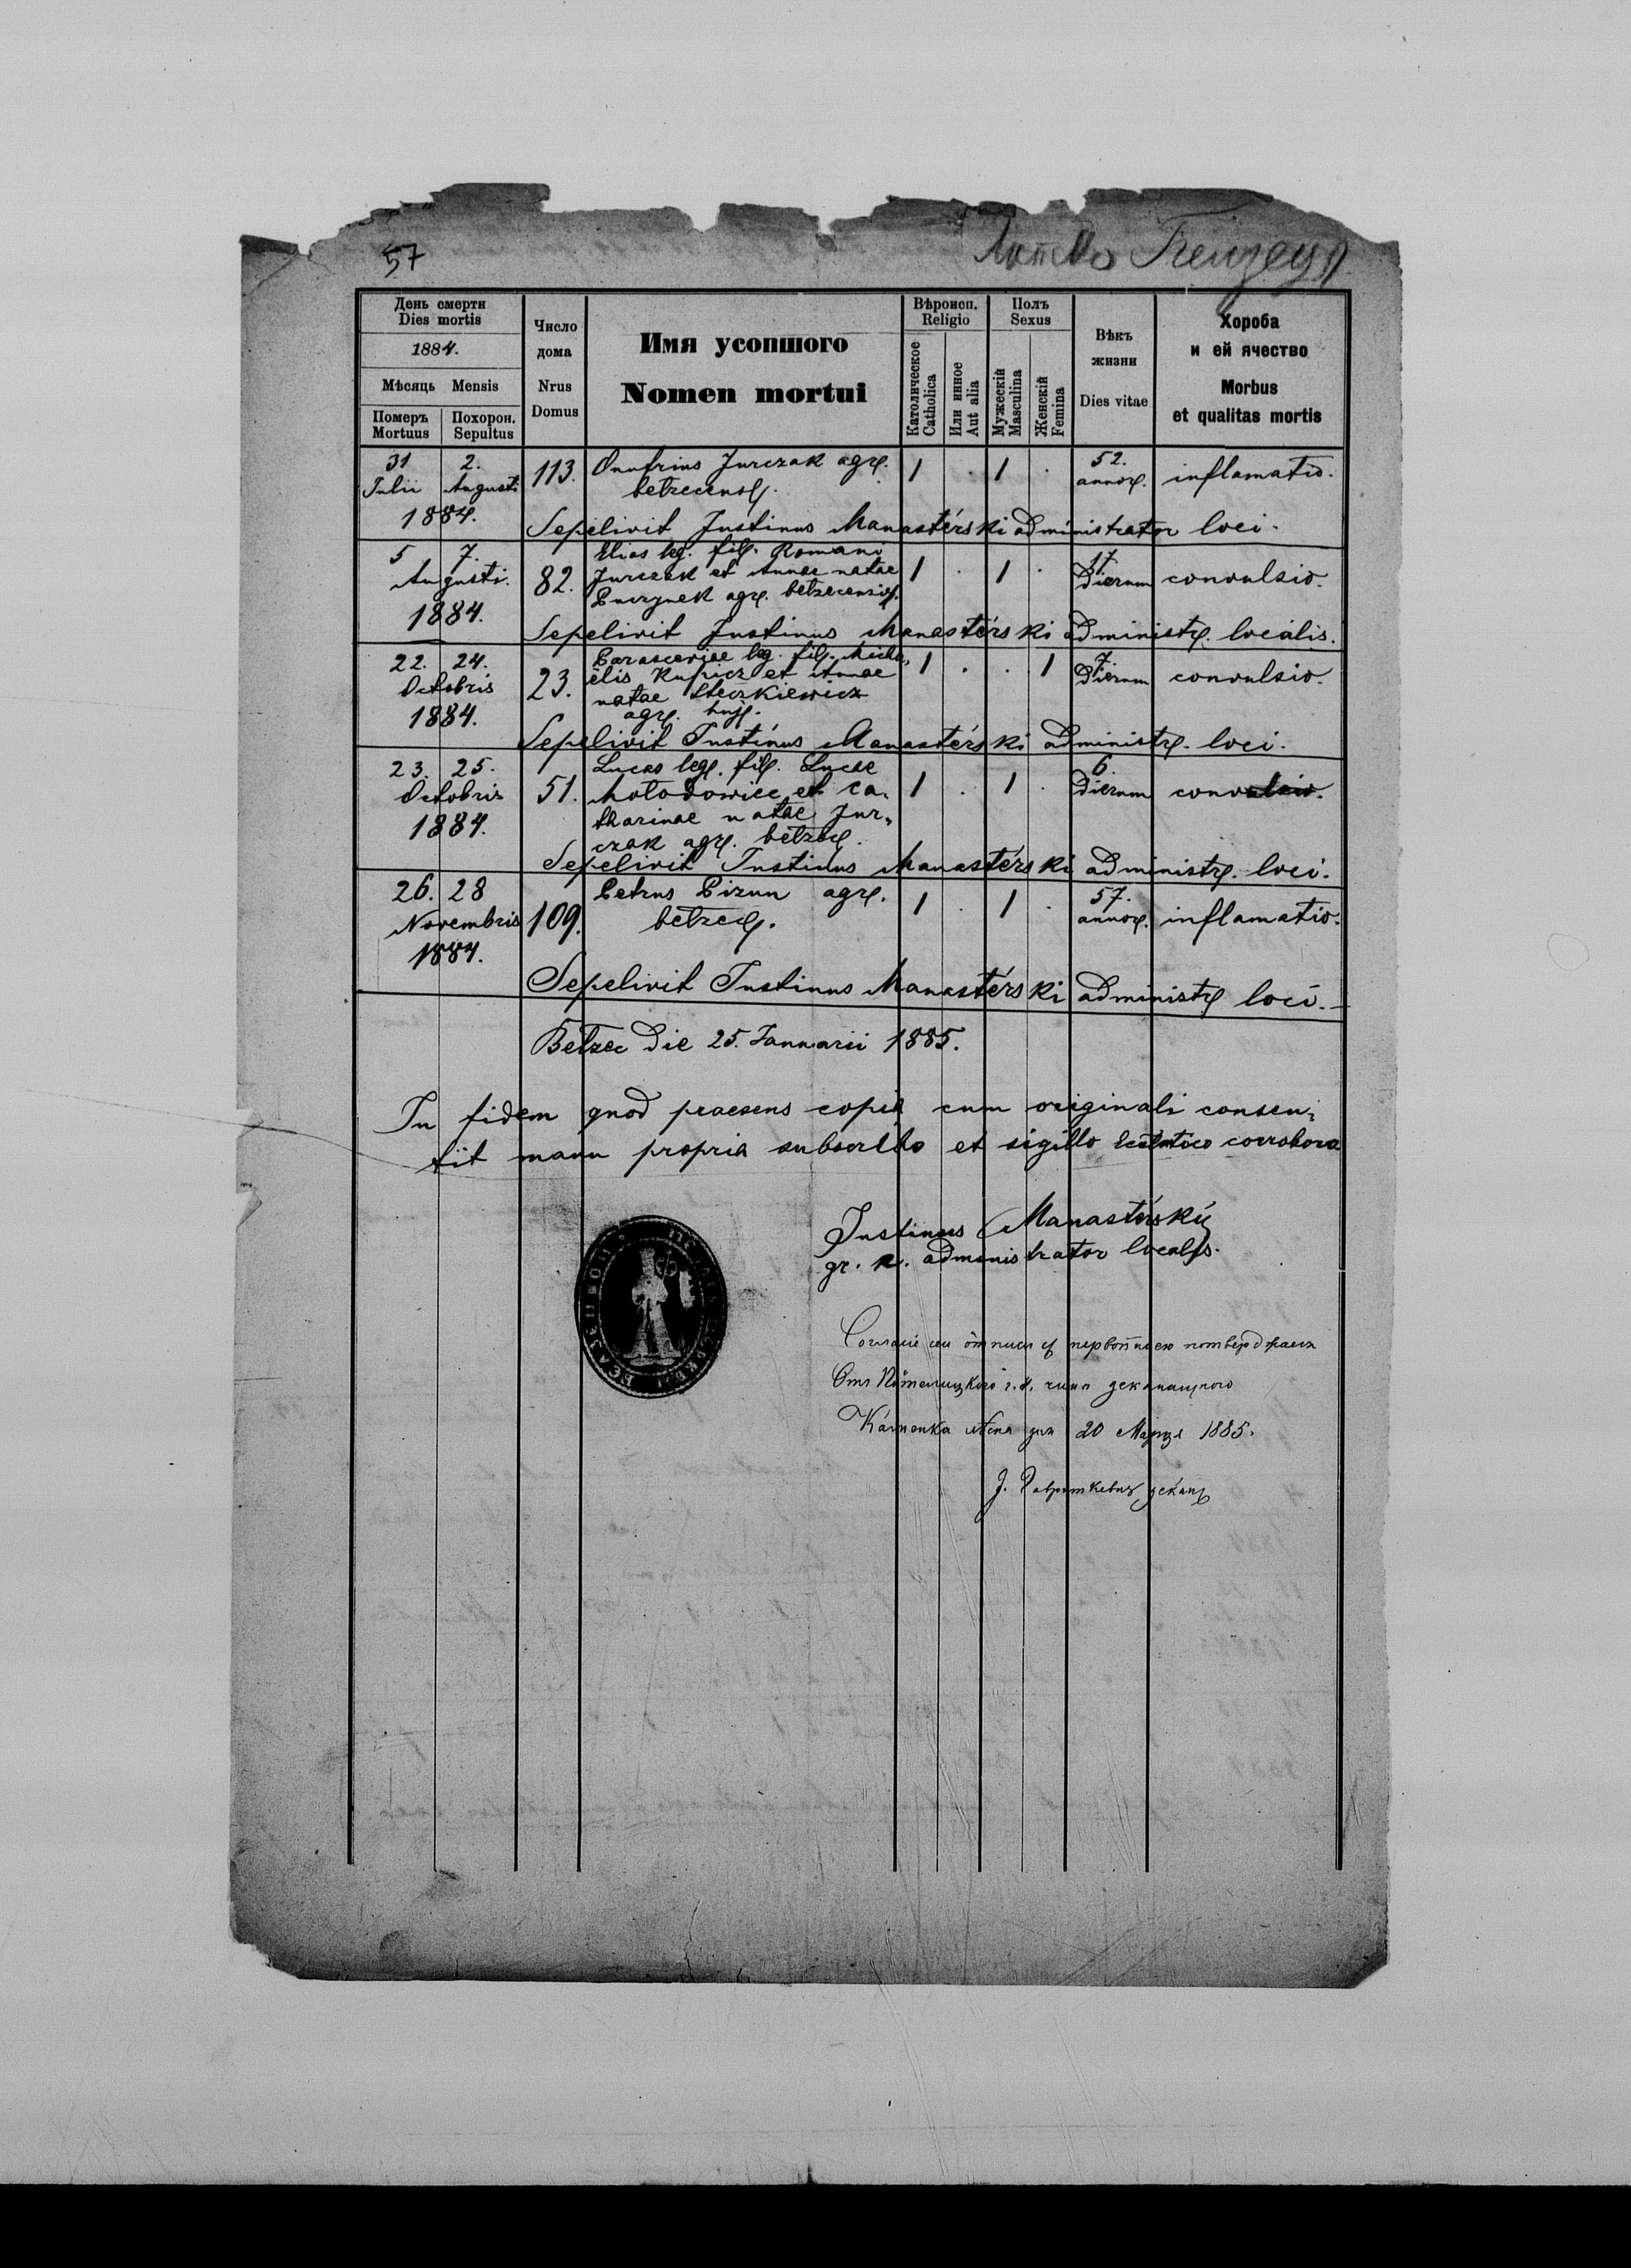 57
День смерти
Dies mortis
1884.
Мѣсяць Mensis
Померъ Похорон.
Mortuus Sepultus
Число
дома
Nrus
Domus
Имя усопшого
Nomen mortui
Вѣроисп.
Religio
Католическое
Catholica
Или инное
Aut alia
Полъ
Sexus
Мужескій
Masculina
Женскій
Femina
Вѣкъ
жизни
Dies vitae
Хороба
и ей ячество
Morbus
et qualitas mortis
31 2.
Julii Augusti
1884.
113.
Onufrius Jurczak agr.
1 . 1 .
52.
annor.
inflamatio.
Sepelivit Justinus Manasterski administrator loci.
5 7.
Augusti.
1884.
82.
Elias leg. fil. Romani
Jurczak et Annae natae
1 . 1 .
17.
Dierum
convulsio.
Sepelivit Justinus Manasterski administr. localis.
22. 24.
Octobris
1884.
23.
Parasceviae leg. fil. Micha„
elis Kupicz et Annae
natae Steczkiewicz
agr. huj.
1 . . 1
7.
Dierum
convulsio.
Sepelivit Justinus Manasterski administr. loci.
23. 25.
Octobris
1884.
51.
Lucas leg. fil. Lucae
Mołodowiec et Ca„
tharinae natae Jur„
czak agr.
1 . 1 .
6.
Dierum
convulsio.
Sepelivit Justinus Manasterski administr. loci.
26. 28
Novembris
1884.
109.
Petrus Pizun agr.
1 . 1 .
57.
annor.
inflamatio.
Sepelivit Justinus Manasterski administr loci.
Bełzec Die 25. Januarii 1885.
In fidem quod praesens copia cum originali consen„
tit manu propria subscribo et sigillo corrobora
Justinus Manasterskij
gr. k. administrator localis.
потверджаесь
Каменка дня 20 Марця 1885.